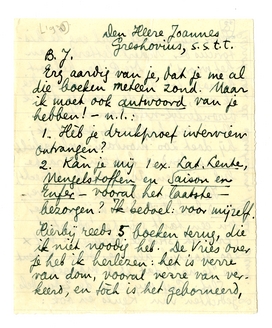 Den Heere Joannes
Greshovius, s.s.t.t.
B. J.
Erg aardig van je, dat je me al
die boeken meteen zond. Maar
ik moet ook antwoord van je
hebben! - n.l.:
1. Heb je drukproef interview
ontvangen?
2. Kan je mij 1 ex. Lat. Lente,
Mengelstoffen en Saison en
Enfer - vooral het laatste -
bezorgen? Ik bedoel: voor mijzelf.
Hierbij reeds 5 boeken terug, die
ik niet noodig heb. De Vries over
je heb ik herlezen: het is verre
van dom, vooral verre van ver-
keerd, en toch is het geborneerd,